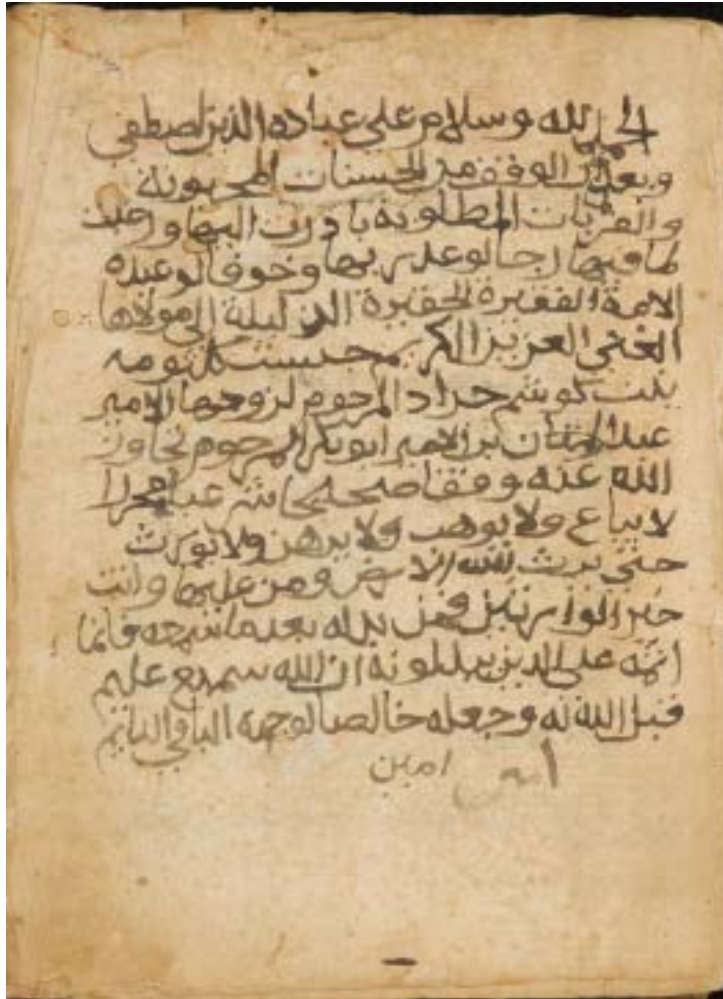 الحمد لله وسلام على عباده الذين اصطفى
وبعد ان الوقف من الحسنات المحبوبة
والقربات المطلوبة بادرت اليها ورغبت
فيها رجا لوعد ربها وخوفا لوعيده
الامة الفقيرة الحقيرة الذليلة الى مولاها
الغني العزيز الكريم كلثومه
بنت المرحوم لزوجها الامير
عبد بن الامير ابوبكر المرحوم تجاوز
الله عنه وقفا صحيحا محررا
لا يباع ولا يوهب ولا يرهن ولا يورث
حتى يرث الله الارض ومن عليها وانت
خير الوارثين فمن بدله بعد ما سمعه فانما
اثمه على الذين يبدلونه ان الله سميع عليم
قبل الله له وجعله خالصا لوجهه الباقي
امين